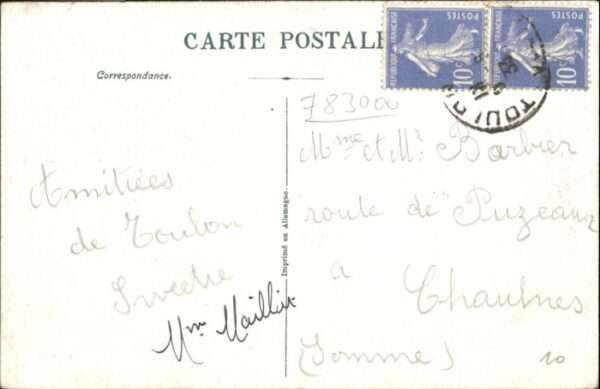 CARTE POSTALE
Correspondance.
RÉPUBLIQUE FRANÇAISE
POSTES
10c
RÉPUBLIQUE FRANÇAISE
POSTES
10c
TOULON
78300
Amitiées
de Toulon
Mme et Mr Barbier
route de Puzeaux
a
Chaulnes
(Somme)
Imprimé en Allemagne.
10